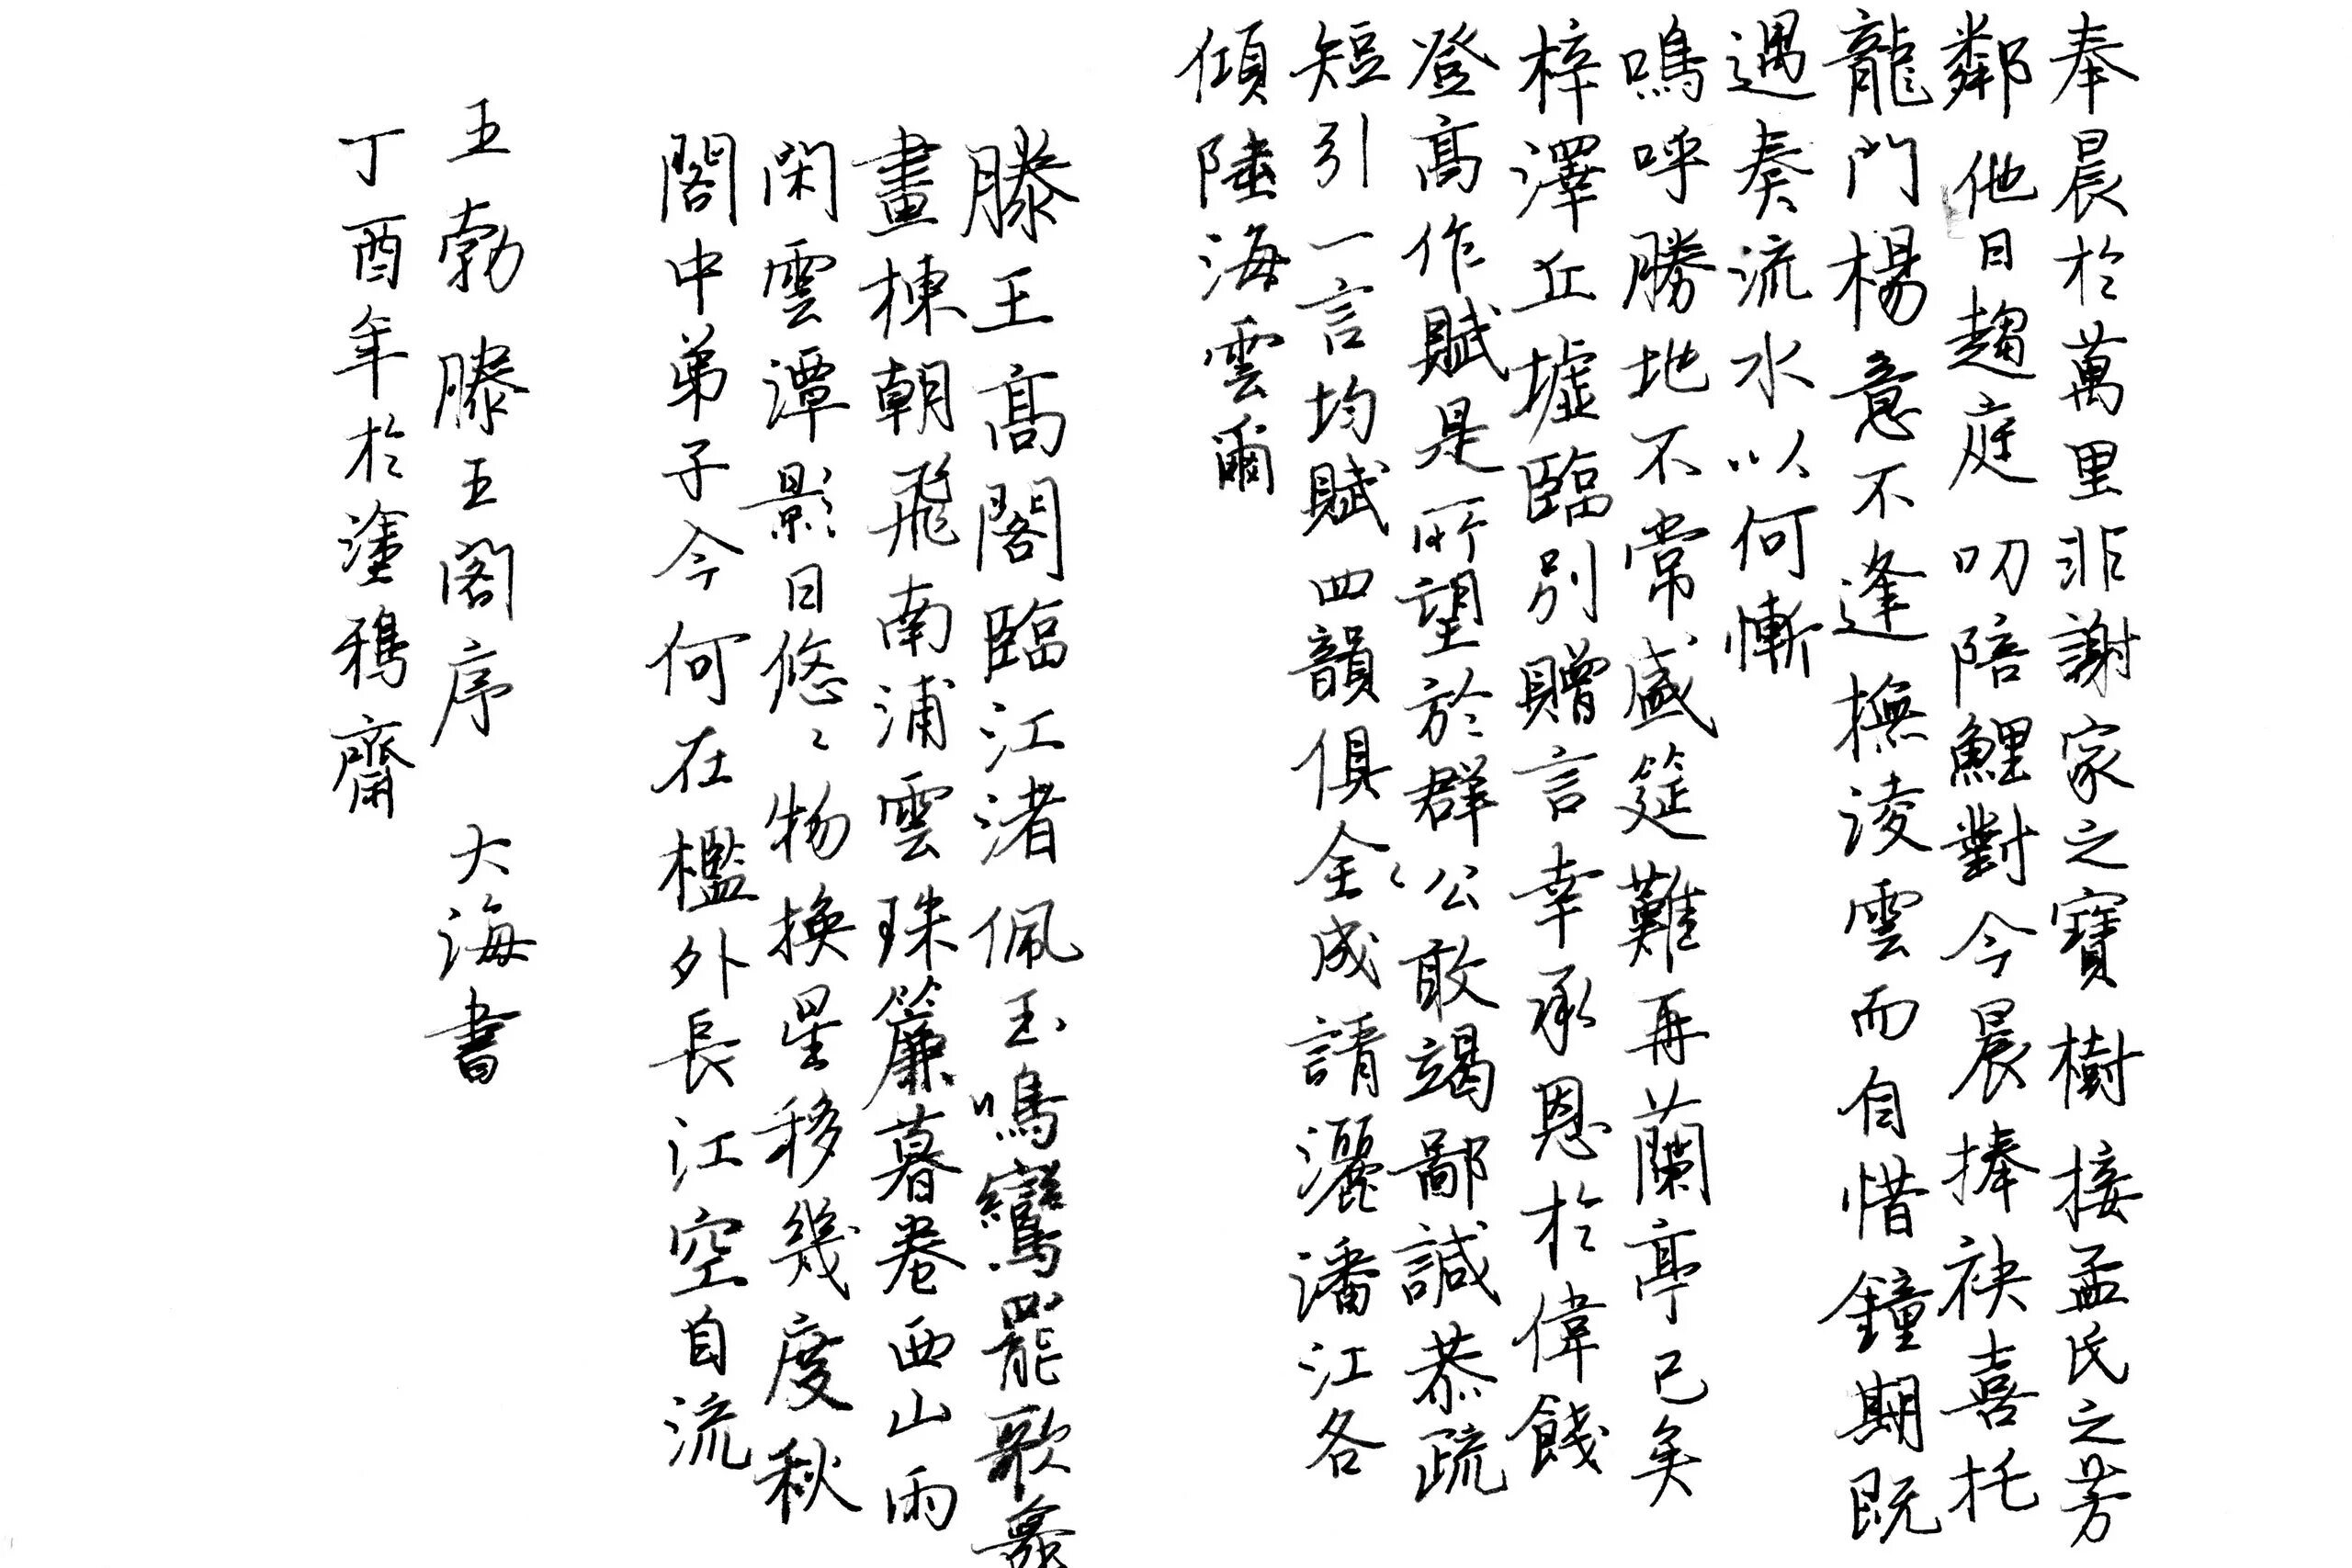 奉晨於萬里非謝家之寶樹接孟氏之芳
鄰他日趨庭叨陪鯉對今晨捧袂喜托
龍門楊意不逢撫淩雲而自惜鐘期既
遇奏流水以何慚
鳴呼勝地不常盛筵難再蘭亭已矣
梓澤丘墟臨別贈言幸承恩於偉餞
登高作賦是所望於群公敢竭鄙誠恭疏
短引一言均賦四韻俱全成請灑潘江各
傾陸海雲爾
滕王高閣臨江渚佩玉鳴鸞罷歌舞
畫棟朝飛南浦雲珠簾暮卷西山雨
閑雲潭影日悠〻物換星移幾度秋
閣中弟子今何在檻外長江空自流
王勃滕王閣序 大海書
丁酉年於塗鴉齋